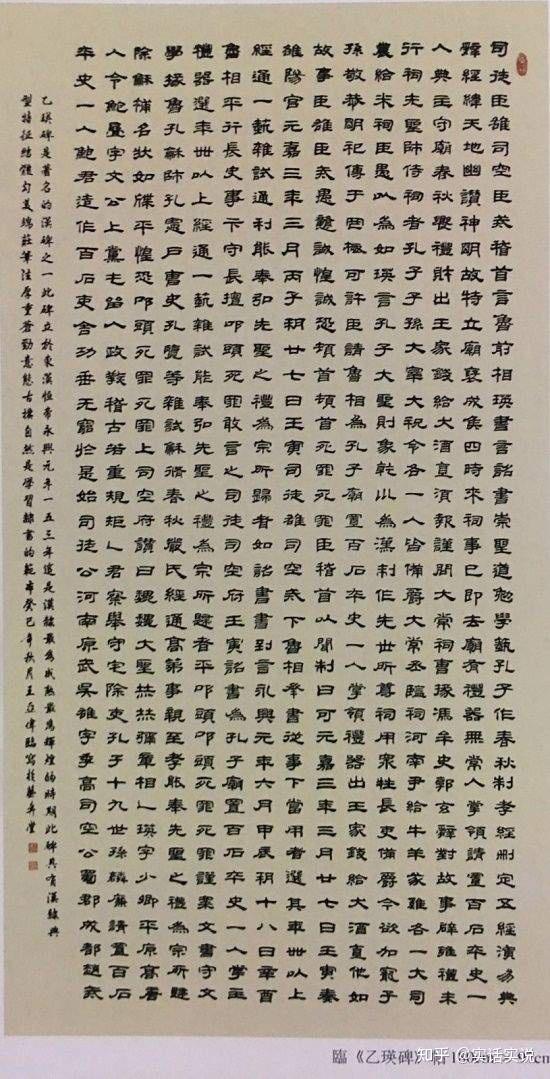 司徒臣雄司空臣戒稽首言魯前相瑛書言詔書崇聖道勉學藝孔子作春秋制孝經刪定五經演易
辭經緯天地幽讚神明故特立廟褒成侯四時來祠事已即去廟有禮器無常人掌領請置百石卒史一
人典主守廟春秋饗禮財出王家錢給犬酒直須報謹問大常祠曹掾馮牟史郭玄辭對故事辟雍禮未
行祠先聖師侍祠者孔子子孫大宰大祝令各一人皆備爵大常丞監祠河南尹給牛羊豕雞各一大司
農給米祠臣愚以為如瑛言孔子大聖則象乾坤為漢制作先世所尊祠用眾牲長吏備爵今欲加寵子
孫敬恭明祀傳于罔極可許臣請魯相為孔子廟置百石卒史一人掌領禮器出王家錢給犬酒直他如
故事臣雄臣戒愚戇誠惶誠恐頓首頓首死罪死罪臣稽首以聞制曰可元嘉三年三月廿七日壬寅奏
雒陽宮元嘉三年三月丙子朔廿七日壬寅司徒雄司空戒下魯相承書從事下當用者選其年卌以上
經通一藝雜試通利能奉弘先聖之禮為宗所歸者如詔書書到言永興元年六月甲辰朔十八日辛酉
魯相平行長史事卞守長擅叩頭死罪敢言之司徒司空府壬寅詔書為孔子廟置百石卒史一人掌主
禮器選年卌以上經通一藝雜試能奉弘先聖之禮為宗所歸者平叩頭叩頭死罪死罪謹案文書守文
學掾魯孔龢師孔憲戶曹史孔覽等雜試龢脩春秋嚴氏經通高第事親至孝能奉先聖之禮為宗所歸
除龢補名狀如牒平惶恐叩頭死罪死罪上司空府讚曰巍巍大聖赫赫彌章相乙瑛字少卿平原高唐
人令鮑疊字文公上黨屯留人政教稽古若重規矩乙君察舉守宅除吏孔子十九世孫麟廉請置百石
卒史一人鮑君造作百石吏舍功垂无窮於是始司徒公河南原武吳雄字季高司空公蜀郡成都趙戒
乙瑛碑是著名的漢碑之一此碑立於東漢恒帝永興元年一五三年這是漢隸最為成熟最為輝煌的時期此碑具有漢隸典
型特征結體勻美端莊筆法厚重蒼勁意態古樸自然是學習隸書的範本癸巳年秋月王亞偉臨寫於
臨《乙瑛碑》
知乎 @实话实说